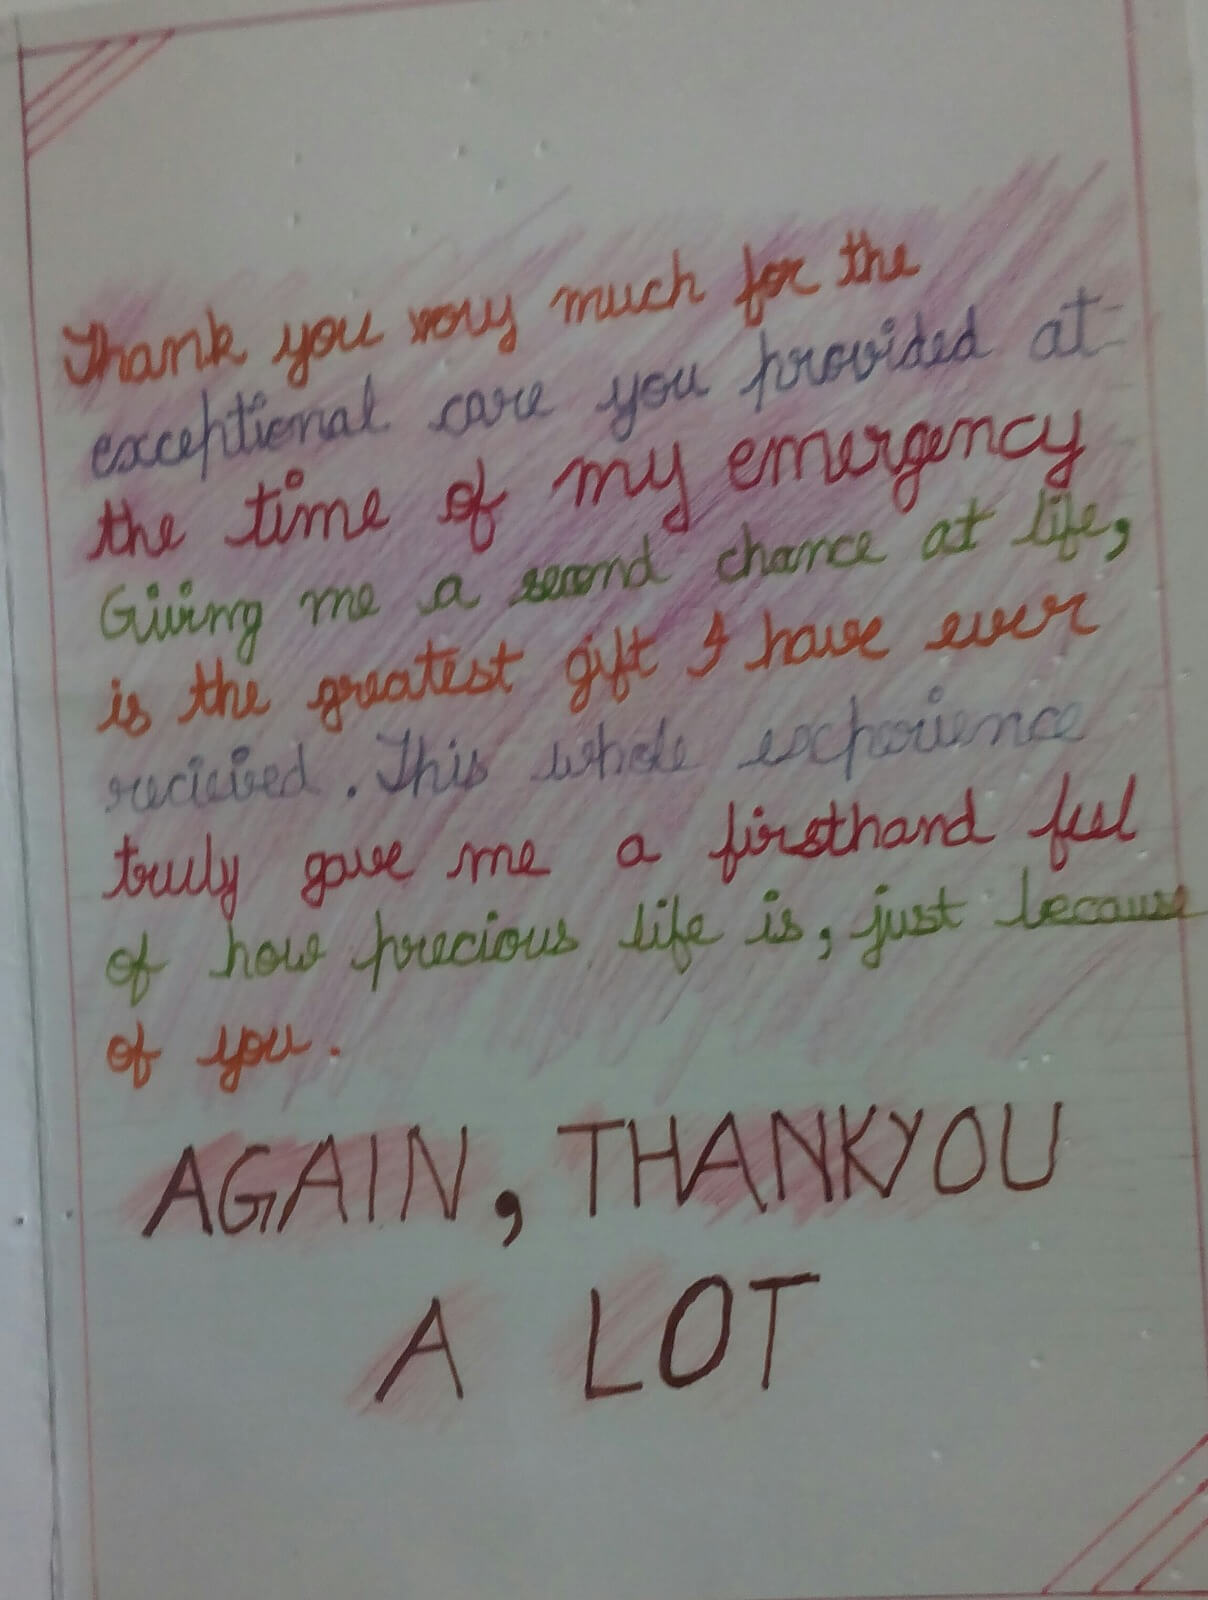 Thank you very much for the
exceptional care you provided at
the time of my emergency
Giving me a second chance at life,
is the greatest gift I have ever
recieved. This whole experience
truly gave me a firsthand feel
of how precious life is, just because
of you.
AGAIN, THANKYOU
A LOT